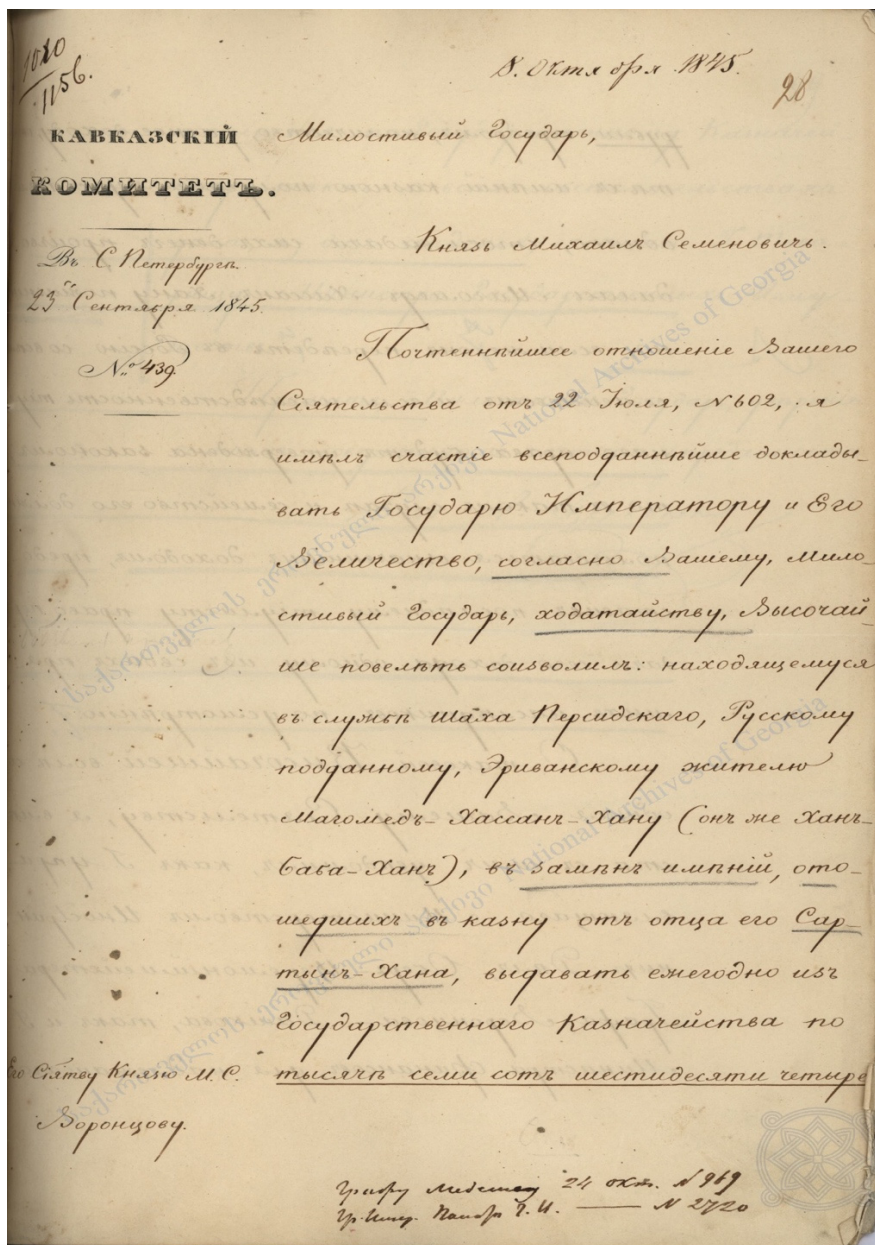 1010
1156.
8. Октября 1845.
28
КАВКАЗСКІЙ
КОМИТЕТЪ.
Въ С Петербургѣ.
23го Сентября 1845.
№ 439
Милостивый Государь,
Князь Михаилъ Семеновичъ.
Почтеннѣйшее отношеніе Вашего
Сіятельства отъ 22 Іюля, №602, я
имѣлъ счастіе всеподданнѣйше доклады-
вать Государю Императору и Его
Величество, согласно Вашему, Мило-
стивый Государь, ходатайству, Высочай-
ше повелѣть соизволилъ: находящемуся
въ службѣ Шаха Персидскаго, Русскому
подданному, Эриванскому жителю
Магомедъ-Хассанъ-Хану (онъ же Ханъ-
Баба-Ханъ), въ замѣнъ имѣній, ото-
шедшихъ въ казну отъ отца его Сар-
тынъ-Хана, выдавать ежегодно изъ
Государственнаго Казначейства по
тысячѣ семи сотъ шестидесяти четыре
Его Сіятву Князю М. С.
Воронцову.
Графу 24 окт. №969
№ 2720
საქართველოს ეროვნული არქივი National Archives of Georgia
საქართველოს ეროვნული არქივი National Archives of Georgia